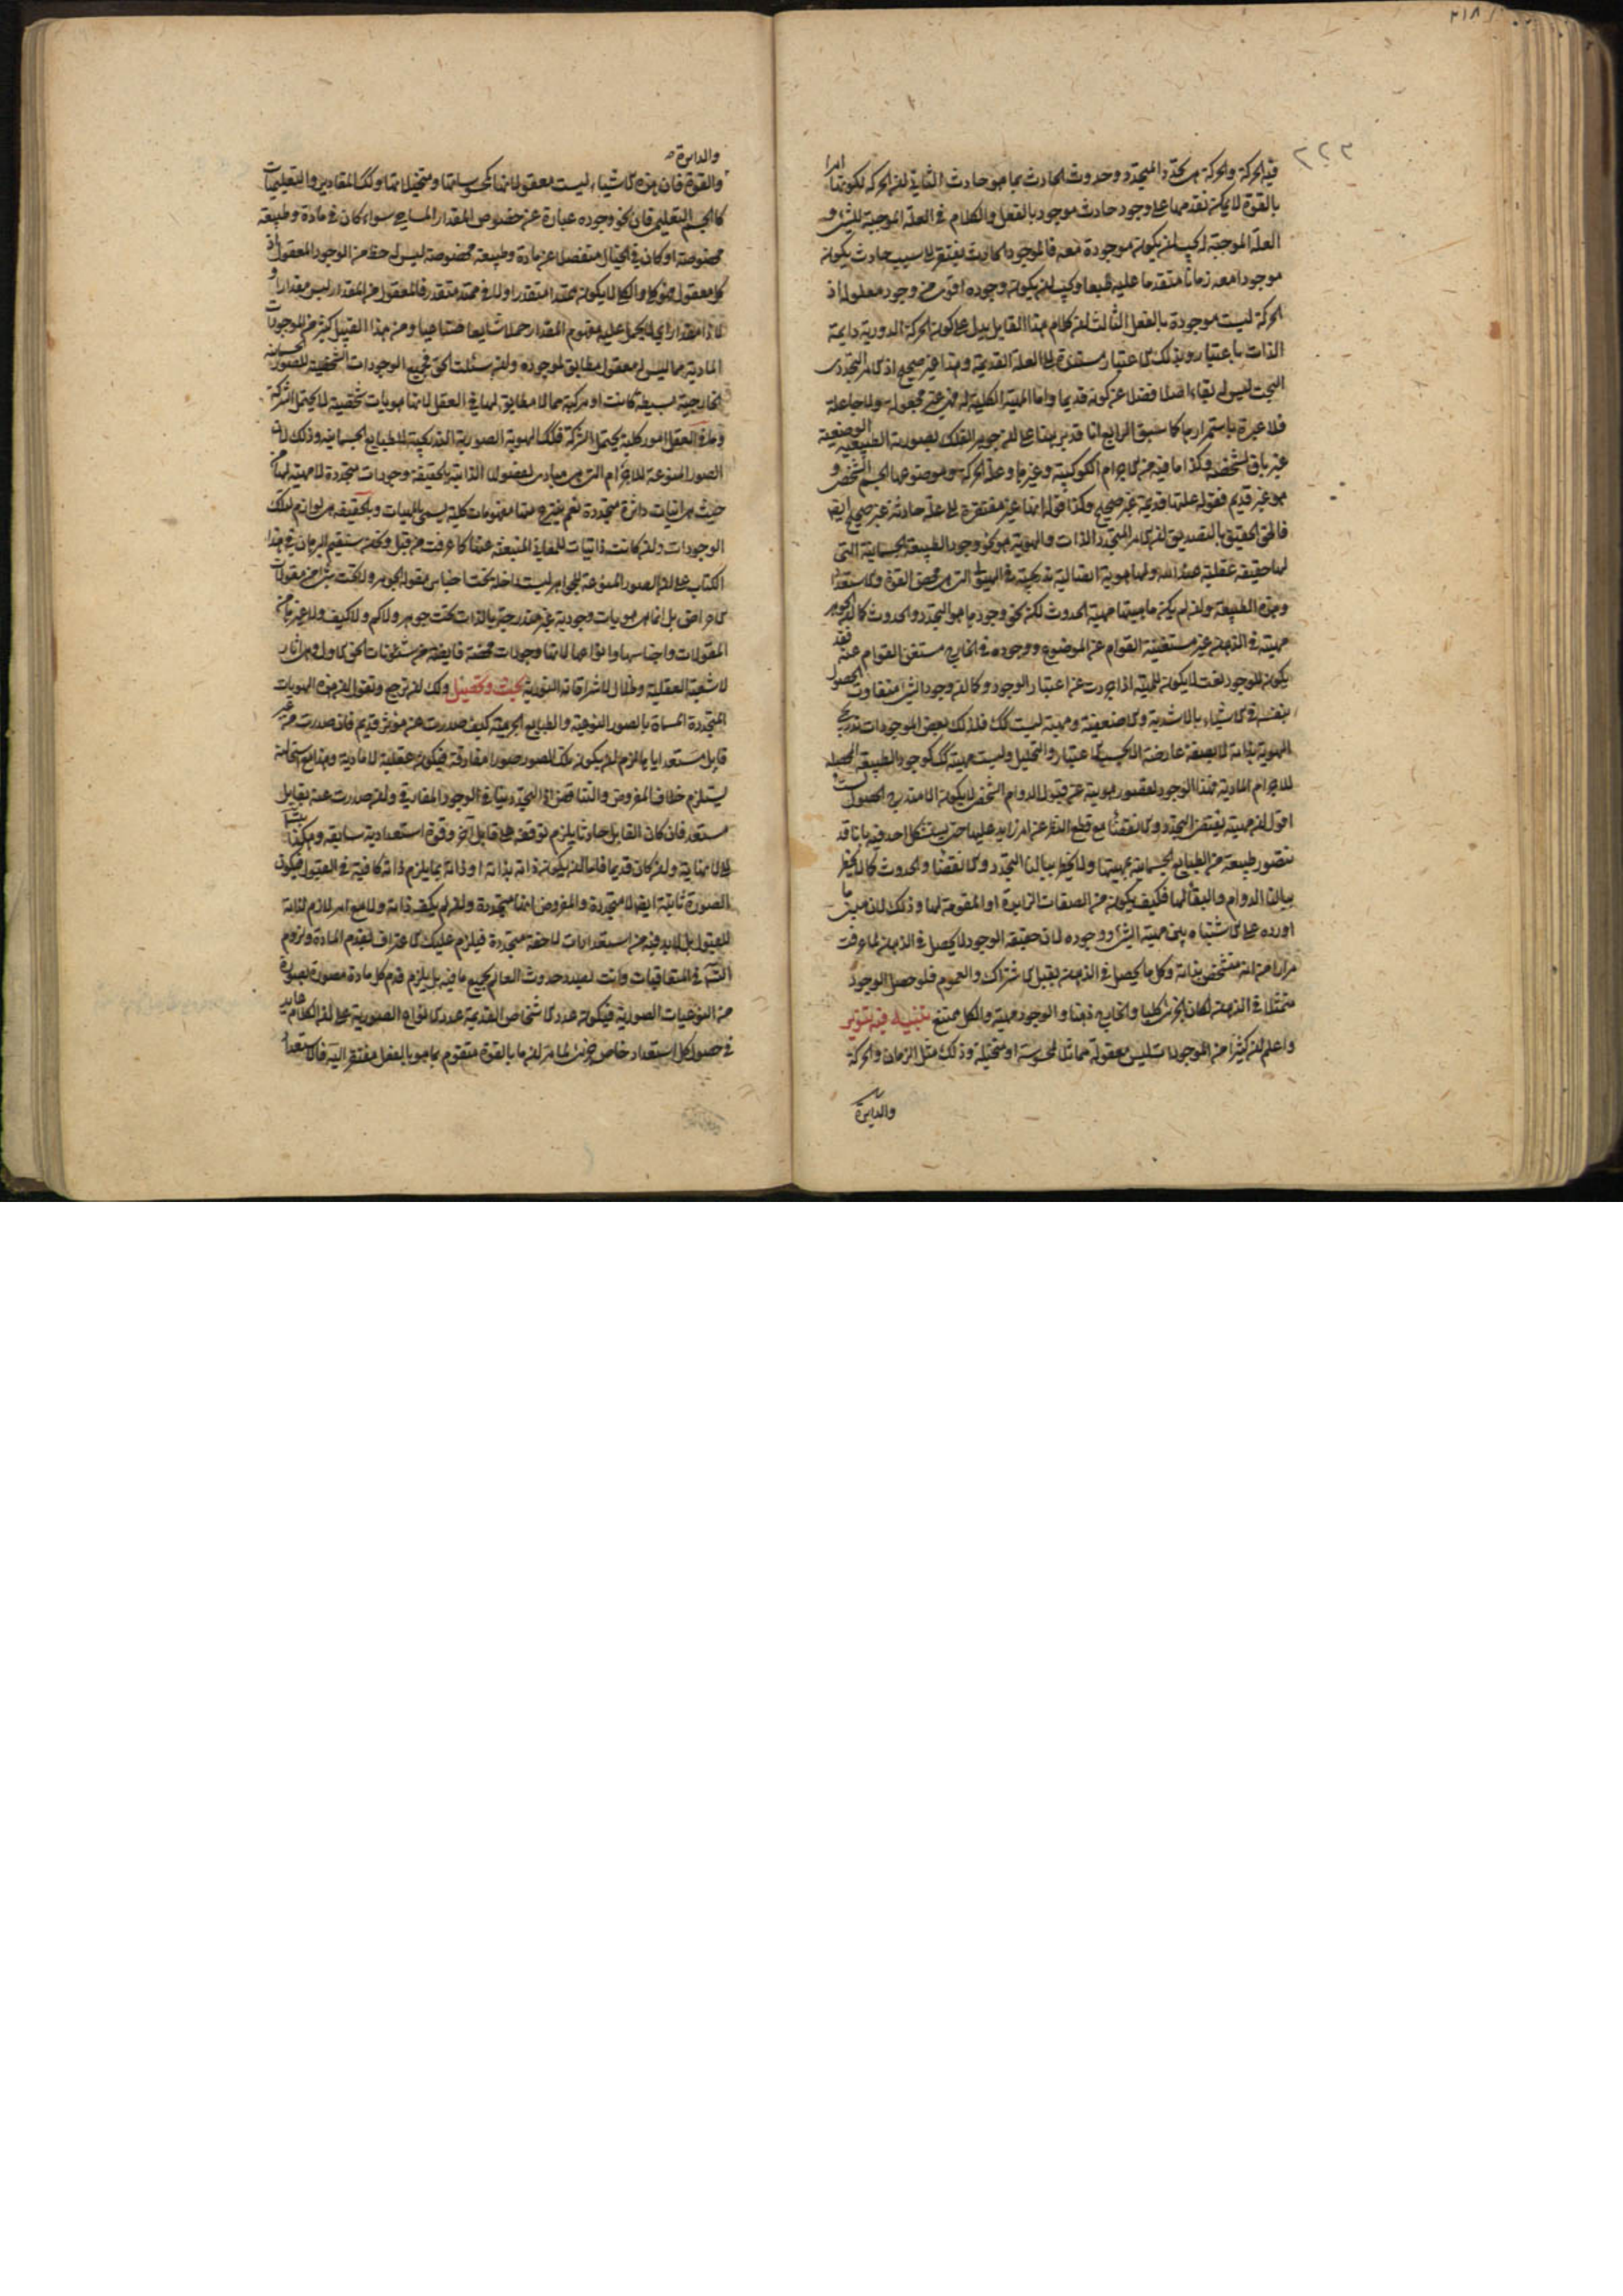 ٢١٨
٢٢٢
فيه الحركة والحركة هي تجدد المتجدد وحدوث الحادث بما هو حادث الثاني ان الحركة لكونها امرا
بالقوة لا يمكن تقدمها على وجود حادث موجود بالفعل والكلام في العلة الموجبة للشيء و
العلة الموجبة له يجب ان يكون موجودة معه فالموجود الحادث يفتقر الى سبب حادث يكون
موجودا معه زمانا متقدما عليه طبعا ويجب ان يكون وجوده اقوى من وجود معلوله اذ
الحركة ليست موجودة بالفعل الثالث ان كلام هذا القايل يدل على كون الحركة الدورية دايمة
الذات باعتبار وبذلك الاعتبار مستندة الى العلة القديمة وهذا غير صحيح اذ الامر التجددي
البحت ليس له بقاء اصلا فضلا عن كونه قديما واما المهية الكلية له فهي غير مجعولة ولا جاعلة
فلا عبرة باستمرارها كما سبق الرابع انا قد برهنا على ان جوهر الفلك بصورته الطبيعية الوضعية
غير باق الشخص وكذا ما فيه من الاجرام الكوكبية وغيرها وعلة الحركة وموضوعها الجسم الشخصي و
هو غير قديم فقوله علتها قديمة غير صحيح وكذا قوله انها غير مفتقرة الى علة حادثة غير صحيح ايضا
فالحق الحقيق بالتصديق ان الامر المتجدد الذات والهوية هو نحو وجود الطبيعة الجسمانية التي
لها حقيقة عقلية عند الله ولها هوية اتصالية تدريجية في الهيولى التي هي محض القوة والاستعداد
وهذه الطبيعة وان لم يكن ماهيتها مهية الحدوث لكن نحو وجودها هو التجدد والحدوث كما ان الجوهر
مهيته في الذهن غير مستغنية القوام عن الموضوع ووجوده في الخارج مستغنى القوام عنه فقد
يكون للوجود نعت لا يكون للمهية اذا جردت عن اعتبار الوجود وكما ان وجود الشيء متفاوت الحصول
بنفسه في الاشياء بالاشدية والاضعفية ومهيته ليست كك فلذلك بعض الموجودات تدريجي
الهوية بذاته لا بصفة عارضة الا بحسب الاعتبار والتحليل وليست مهيته كك كوجود الطبيعة المحصلة
للاجرام المادية فهذا الوجود لقصور هويته عن قبول الدوام الشخصي لا يكون الا متدرج الحصول لست
اقول ان مهيته يقتضي التجدد والانقضاء مع قطع النظر عن امر زايد عليها حتى يستشكل احد فيه بانا قد
نتصور طبيعة من الطبايع الجسمانية بمهيتها ولا يخطر ببالنا التجدد والانقضاء والحدوث كما لا يخطر
ببالنا الدوام والبقاء لها فكيف يكون من الصفات الذاتية او المقومة لها وذلك لان مبنى ما
اورده على الاشتباه بين مهية الشيء ووجوده لان حقيقة الوجود لا يحصل في الذهن لما عرفت
مرارا من انه متشخص بذاته وكل ما يحصل في الذهن يقبل الاشتراك والعموم فلو حصل الوجود
متمثلا في الذهن لكان الجزئي كليا والخارج ذهنا والوجود مهية والكل ممتنع تنبيه فيه تنوير
واعلم ان كثيرا من الموجودات ليس معقوله مماثلا لمحسوسه او متخيله وذلك مثل الزمان والحركة
والدايرة
والدايرة
والقوة فان هذه الاشياء ليست معقولاتها كمحسوساتها ومتخيلاتها وكك المقادير والتعليميات
كالجسم التعليمي فان نحو وجوده عبارة عن خصوص المقدار المساحي سواء كان في مادة وطبيعة
مخصوصة او كان في الخيال منفصلا عن مادة وطبيعة مخصوصة ليس له حظ من الوجود المعقول اذ
كل معقول فهو كلي والكلي لا يكون ممتدا متقدرا ولا في ممتد متقدر فالمعقول من المقدار ليس مقدارا و
لا ذا مقدار اي لا يحمل عليه مفهوم المقدار حملا شايعا صناعيا ومن هذا القبيل كثير من الموجودات
المادية مما ليس له معقول مطابق لموجوده ولئن سئلت الحق فجميع الوجودات الشخصية للصور الجسمانية
الخارجية بسيطة كانت او مركبة مما لا مطابق لها في العقل لانها هويات شخصية لا يحتمل الشركة
وما في العقل امور كلية يحتمل الشركة فكك الهوية الصورية التدريجية للطبايع الجسمانية وذلك لان
الصور المنوعة للاجرام التي هي مبادي لفصولها الذاتية بالحقيقة وجودات متجددة لا مهية لها من
حيث هي انيات دائرة متجددة نعم ينتزع عنها مفهومات كلية يسمى بالمهيات وبالحقيقة هي لوازم لتلك
الوجودات وان كانت ذاتيات للمعاني المنبعثة عنها كما عرفت من قبل ونحن سنقيم البرهان في هذا
الكتاب على ان الصور المنوعة للجواهر ليست داخلة تحت اجناس مقولة الجوهر ولا تحت شيء من مقولات
الاعراض بل انما هي هويات وجودية غير مندرجة بالذات تحت جوهر ولا كم ولا كيف ولا غيرها من
المقولات واجناسها وانواعها لانها وجودات محضة فايضة من شئونات الحق الاول وهي اثار
لاشعته العقلية وظلال لاشراقاته النورية بحث وتحصيل ولك ان ترجع وتقول ان هذه الهويات
المتجددة المسماة بالصور النوعية والطبايع الجرمية كيف صدرت عن مؤثر قديم فان صدرت عنه من غير
قابل مستعد اياها لزم ان يكون تلك الصور صورا مفارقة فيكون عقلية لا مادية وهذا مع استحالته
يستلزم خلاف المفروض والتناقض اذ التجدد ينافي الوجود المفارقي وان صدرت عنه بقابل
مستعد فان كان القابل حادثا يلزم توقفه على قابل آخر وقوة استعدادية سابقة وهكذا يتسلسل
الى لا نهاية وان كان قديما فاما ان يكون ذاته بذاته او ذاته بما يلزم ذاته كافية في القبول فيكون
الصورة ثابتة ايضا لا متجددة والمفروض انها متجددة وان لم يكف ذاته ولا مع امر لازم لذاته
للقبول بل لابد فيه من استعدادات لاحقة متجددة فيلزم عليك الاعتراف بقدم المادة ولزوم
التسلسل في المتعاقبات وانت بصدد حدوث العالم بجميع ما فيه بل يلزم قدم كل مادة مصورة بصورة
من النوعيات الصورية فيكون عدد الاشخاص القديمة عدد الانواع الصورية على ان الكلام عايد
في حصول كل استعداد خاص جزئي لما مر ان ما بالقوة متقوم بما هو بالفعل مفتقر اليه فالاستعداد